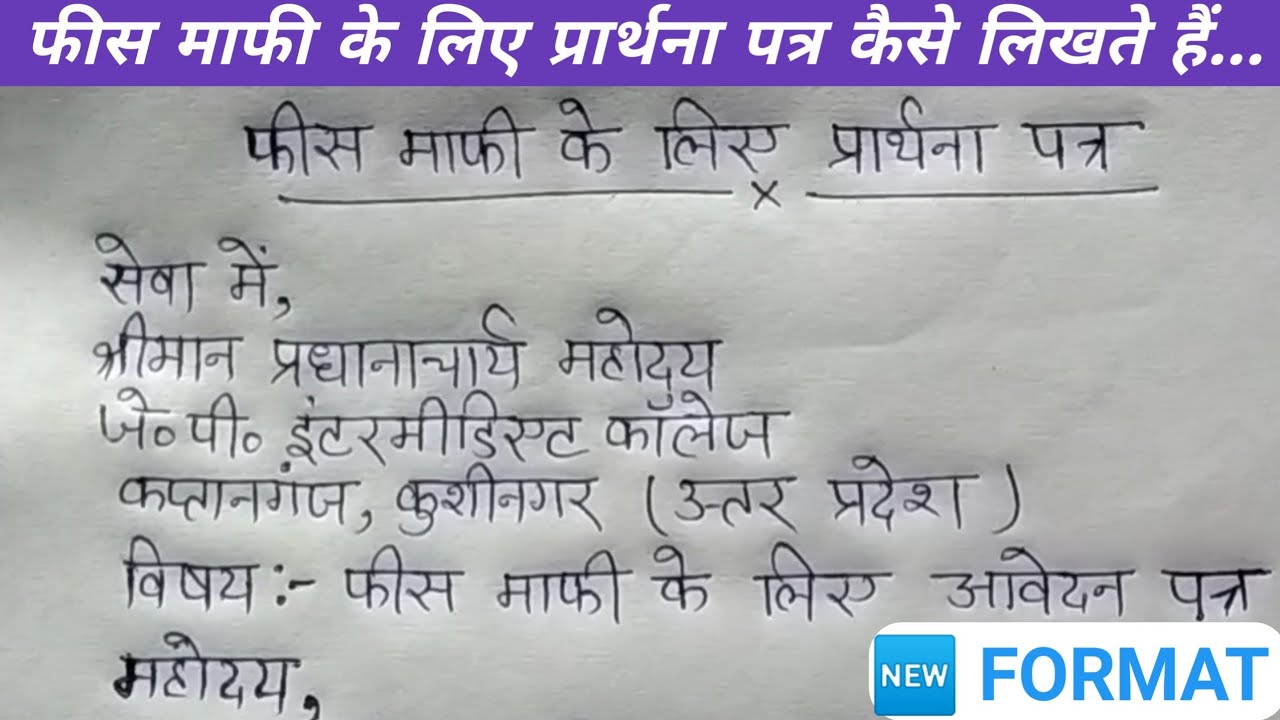 फीस माफी के लिए प्रार्थना पत्र कैसे लिखते हैं...
फीस माफी के लिए प्रार्थना पत्र
x
सेवा में,
श्रीमान प्रधानाचार्य महोदय
जे०पी० इंटरमीडिएट कॉलेज
कप्तानगंज, कुशीनगर (उत्तर प्रदेश)
विषय:- फीस माफी के लिए आवेदन पत्र
महोदय,
NEW FORMAT